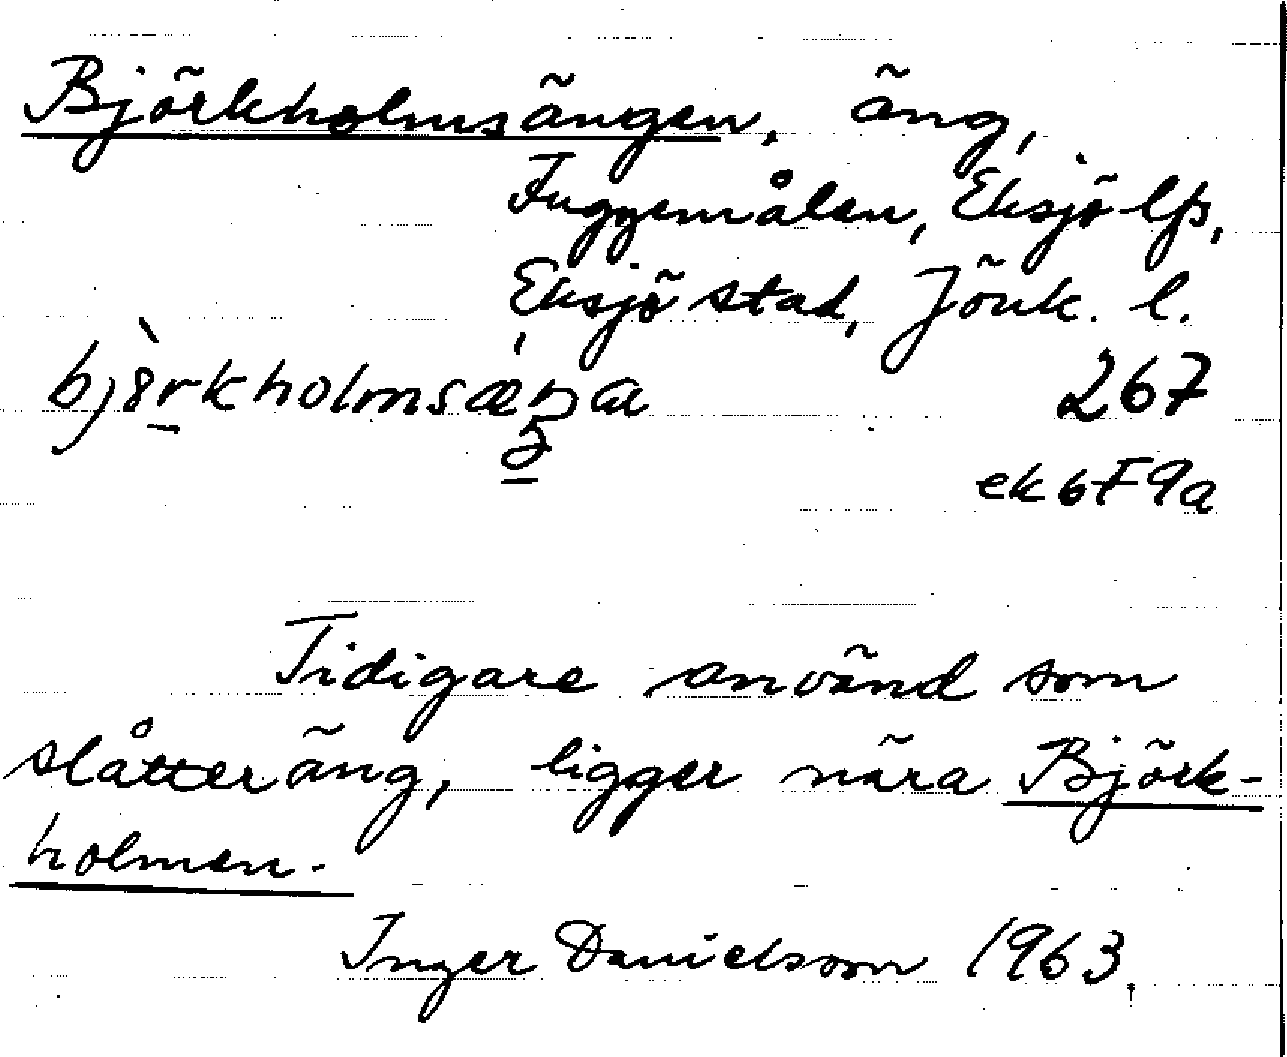 Björkholmsängen, äng,
Fuggemålen, Eksjö lfs,
Eksjö stad, Jönk. l.
267
ek 6F9a
Tidigare använd som
slåtteräng, ligger nära Björk-
holmen.
Inger Danielsson 1963.